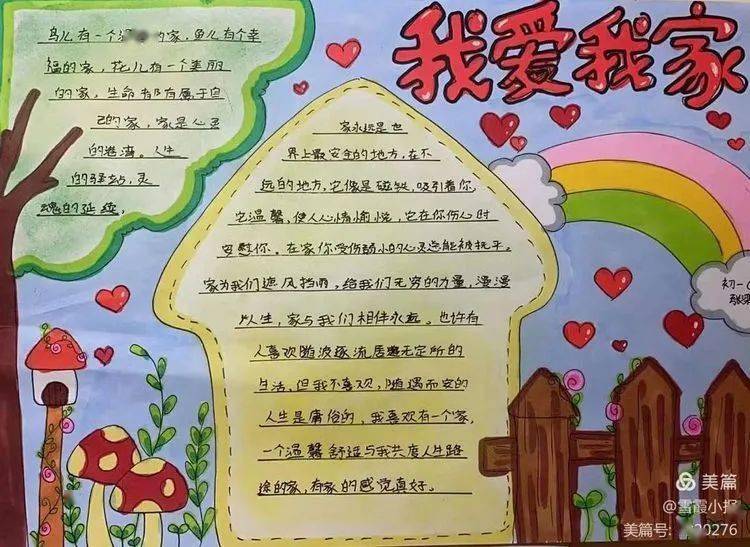 我爱我家
鸟儿有一个的家,鱼儿有个幸
福的家,花儿有一个美丽
的家,生命都有属于自
己的家,家是心灵
的港湾。人生
的驿站,灵
魂的延续,
家永远是世
界上最安全的地方,在不
远的地方,它像是磁铁,吸引着你,
它温馨,使人心情愉悦,它在你伤心时
安慰你。在家你受伤弱小的心灵总能被抚平。
家为我们遮风挡雨,给我们无穷的力量,漫漫
人生,家与我们相伴永远。也许有
人喜欢随波逐流居无定所的
生活,但我不喜欢,随遇而安的
人生是庸俗的,我喜欢有一个家,
一个温馨舒适与我共度人生路
途的家,有家的感觉真好。
初一
美篇
@雪霞小
美篇号:20276